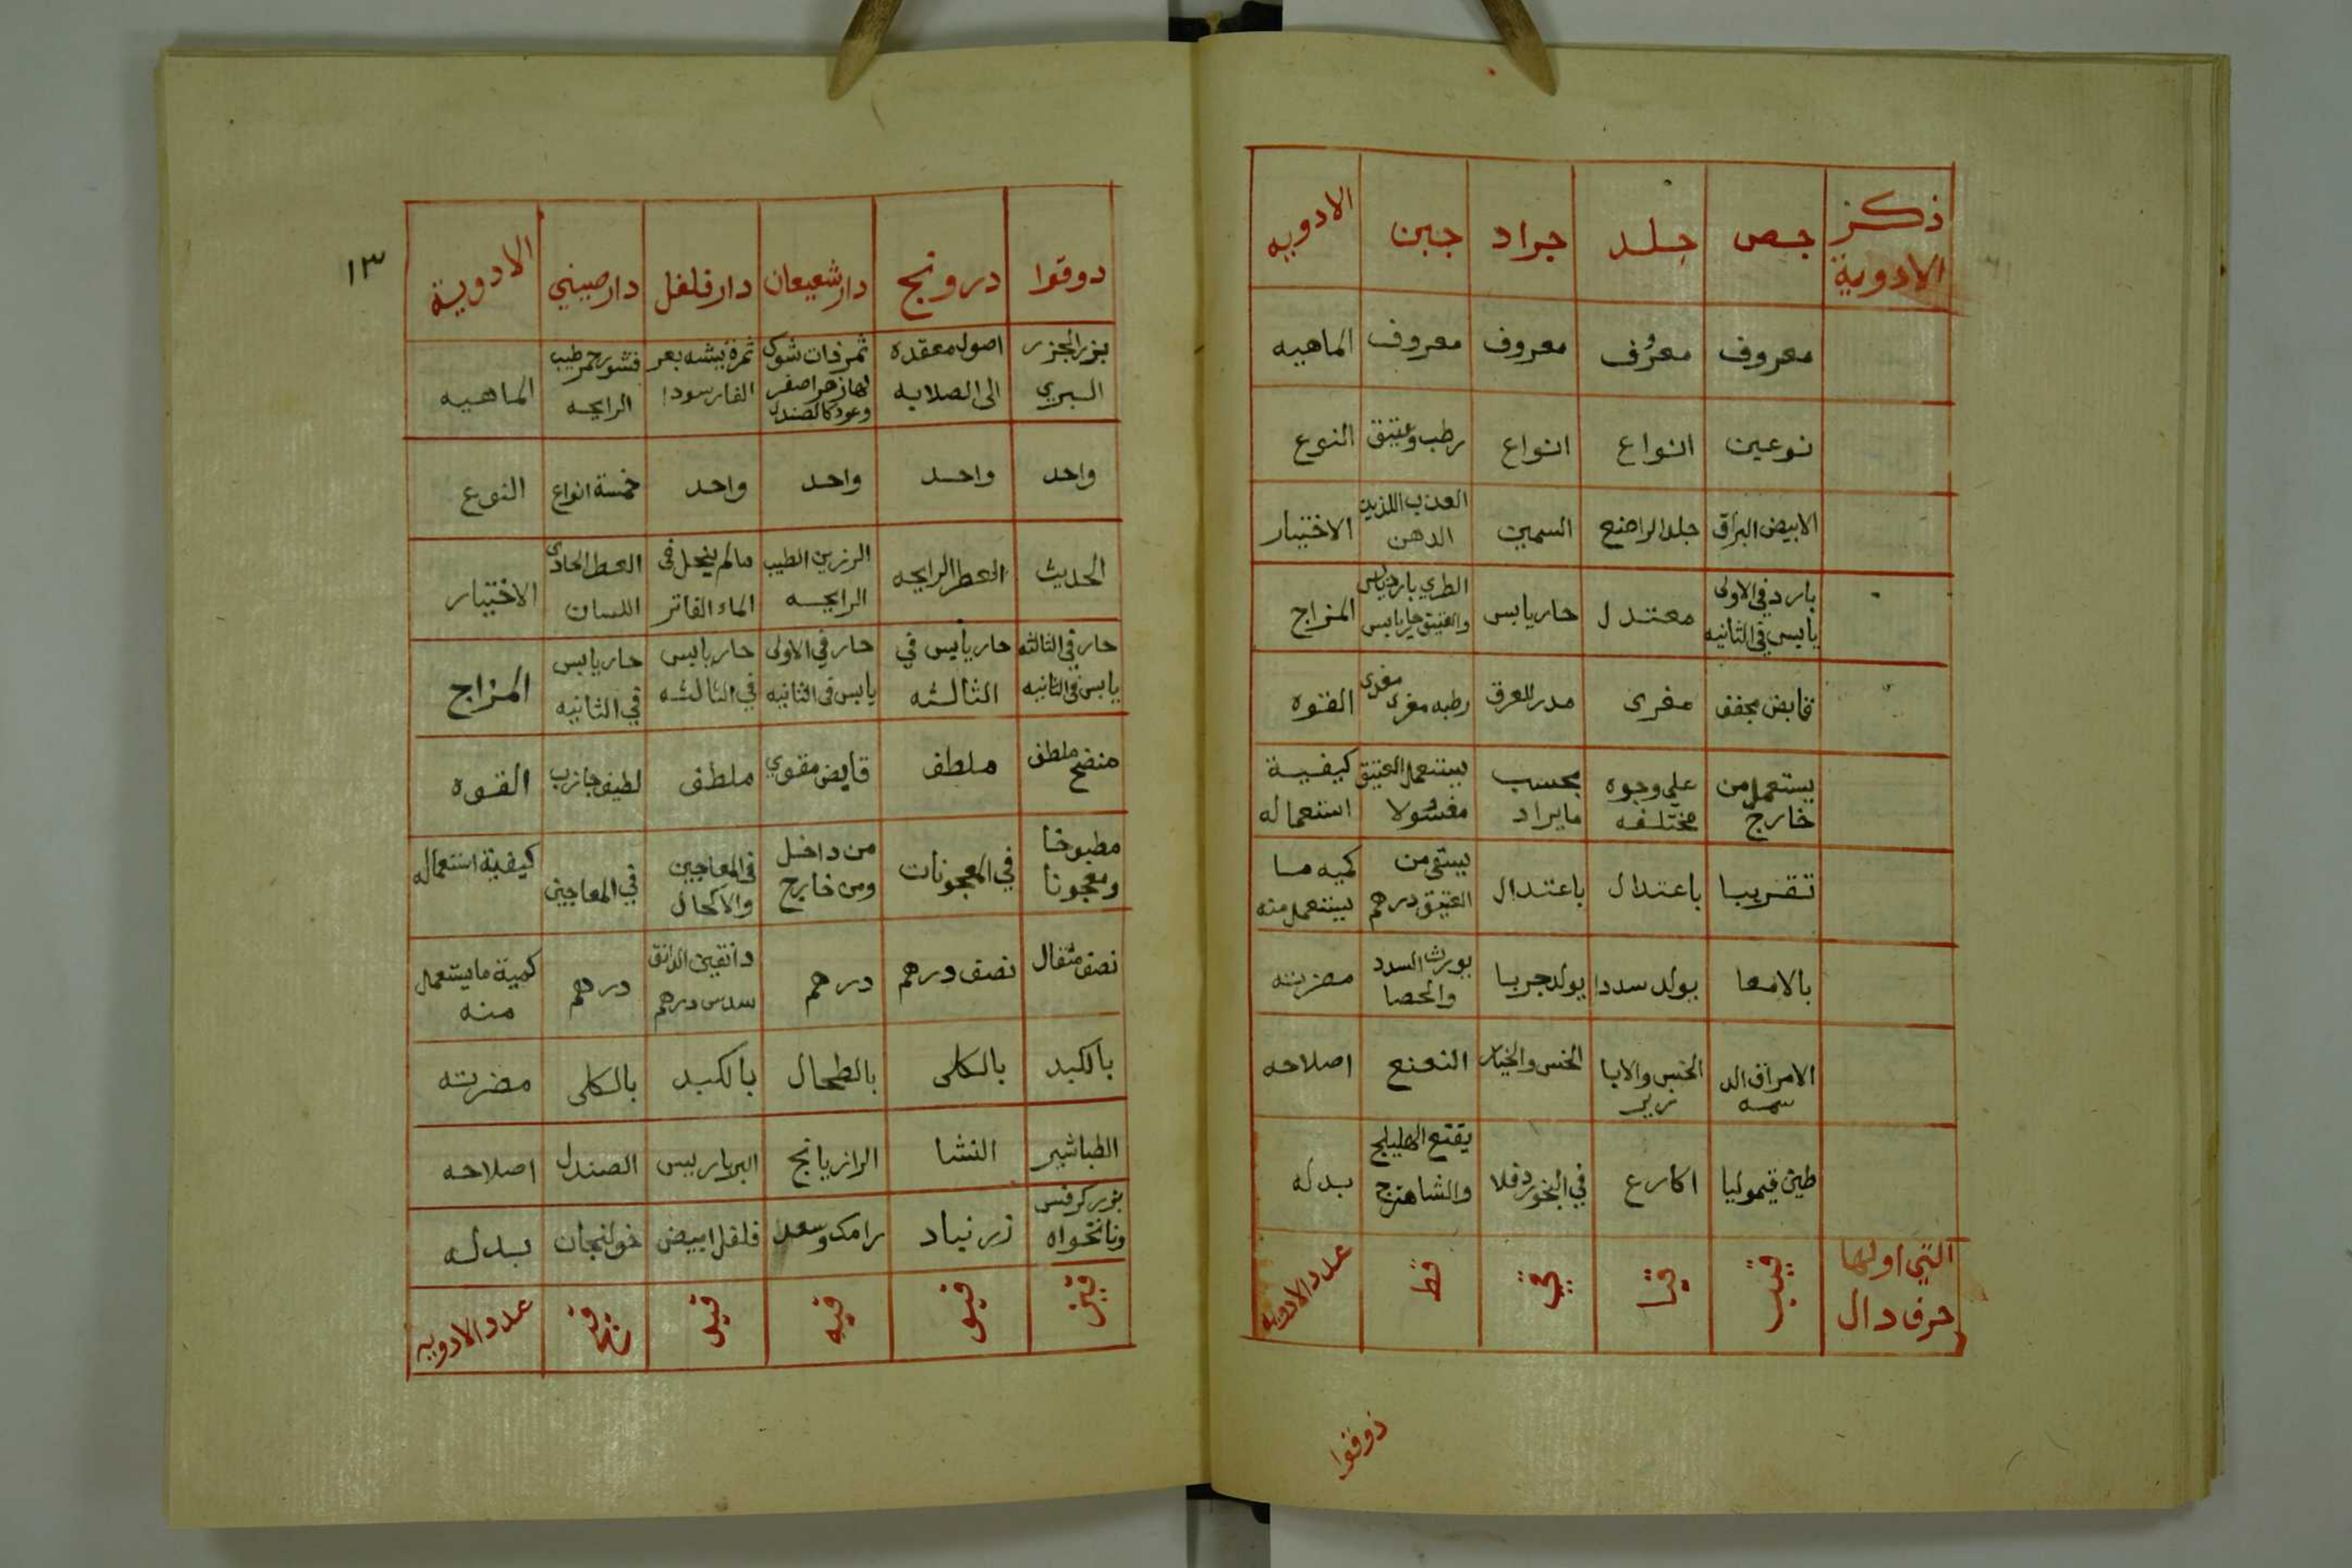 ذكر الادوية | جص | جلد | جراد | جبن | الادويه
معروف | معرُف | معروف | معروف | الماهيه
نوعين | انواع | انواع | رطب وعتيق | النوع
الابيض البراق | جلد الراضع | السمين | العذب اللذيذ الدهن | الاختيار
بارد في الاولى يابس في الثانيه | معتدل | حار يابس | الطري بارد يابس والعتيق حار يابس | المزاج
قابض مجفف | مغرى | مدر للعرق | رطبه مغرى مغرى | القوه
يستعمل من خارج | على وجوه مختلفه | بحسب ما يراد | يستعمل العتيق مغسولا | كيفية استعماله
تقريبا | باعتدال | باعتدال | يسقى من العتيق درهم | كميه ما يستعمل منه
بالامعا | يولد سددا | يولد جربا | يورث السدد والحصا | مضرته
الامراق الدسمه | الخس والابازير | الخس والخيار | النعنع | اصلاحه
طين قيموليا | اكارع | في البخور دفلا | يقتع الهليلج والشاهترج | بدله
التي اولها حرف دال | قيب | قيا | قي | قط | عدد الادويه
ذوقوا
١٣
دوقوا | درونج | دارشعيعان | دارفلفل | دارصيني | الادوية
بزر الجزر البري | اصول معقده الى الصلابه | ثمر ذات شوك لها زهر اصفر وعود كالصندل | ثمرة يشبه بعر الفار سودا | قشور حمر طيب الرايحه | الماهيه
واحد | واحد | واحد | واحد | خمسة انواع | النوع
الحديث | العطر الرايحه | الرزين الطيب الرايحه | مالم ينحل في الماء الفاتر | العطر الحاد اللسان | الاختيار
حار في الثالثه يابس في الثانيه | حار يابس في الثالثه | حار في الاولى يابس في الثانيه | حار يابس في الثالثه | حار يابس في الثانيه | المزاج
منضج ملطف | ملطف | قابض مقوي | ملطف | لطيف جاذب | القوه
مطبوخا ومعجونا | في المعجونات | من داخل ومن خارج | في المعاجين والاكحال | في المعاجين | كيفية استعماله
نصف مثقال | نصف درهم | درهم | دانقين الدانق سدس درهم | درهم | كمية ما يستعمل منه
بالكبد | بالكلى | بالطحال | بالكبد | بالكلى | مضرته
الطباشير | النشا | الرازيانج | البرباريس | الصندل | اصلاحه
بزر كرفس ونانخواه | زرنباد | رامك وسعد | فلفل ابيض | خولنجان | بدله
قيز | قيو | قيه | قيد | قيج | عدد الادويه